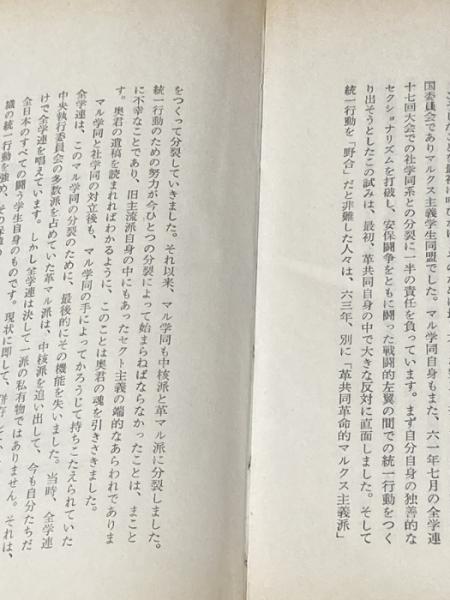 国委員会でありマルクス主義学生同盟でした。マル学同自身もまた、六一年七月の全学連
十七回大会での社学同系との分裂に一半の責任を負っています。まず自分自身の独善的な
セクショナリズムを打破し、安保闘争をともに闘った戦闘的左翼の間での統一行動をつく
り出そうとしたこの試みは、最初、革共同自身の中で大きな反対に直面しました。そして
統一行動を「野合」だと非難した人々は、六三年、別に「革共同革命的マルクス主義派」
をつくって分裂していきました。それ以来、マル学同も中核派と革マル派に分裂しました。
統一行動のための努力が今ひとつの分裂によって始まらねばならなかったことは、まこと
に不幸なことであり、旧主流派自身の中にもあったセクト主義の端的なあらわれでありま
す。奥君の遺稿を読まれればわかるように、このことは奥君の魂を引きさきました。
マル学同と社学同の対立後も、マル学同の手によってかろうじて持ちこたえられていた
全学連は、このマル学同の分裂のために、最後的にその機能を失いました。当時、全学連
中央執行委員会の多数派を占めていた革マル派は、中核派を追い出して、今も自分たちだ
けで全学連を唱えています。しかし全学連は決して一派の私有物ではありません。それは、
全日本のすべての闘う学生自身のものです。現状に即して、
織の統一行動を強め、その